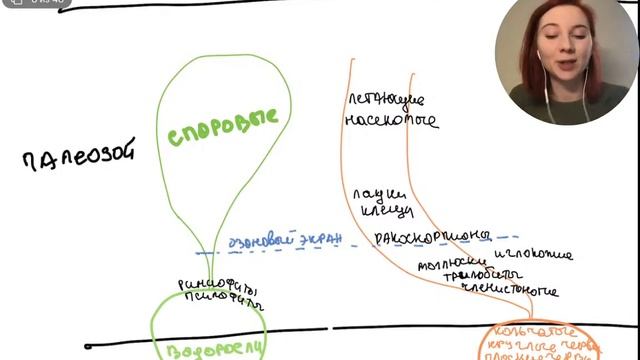 летающие
насекомые
споровые
палеозой
пауки
клещи
озоновый экран
ракоскорпионы
моллюски иглокожие
трилобиты
членистоногие
риниофиты
псилофиты
водоросли
кольчатые
круглые черви
плоские черви